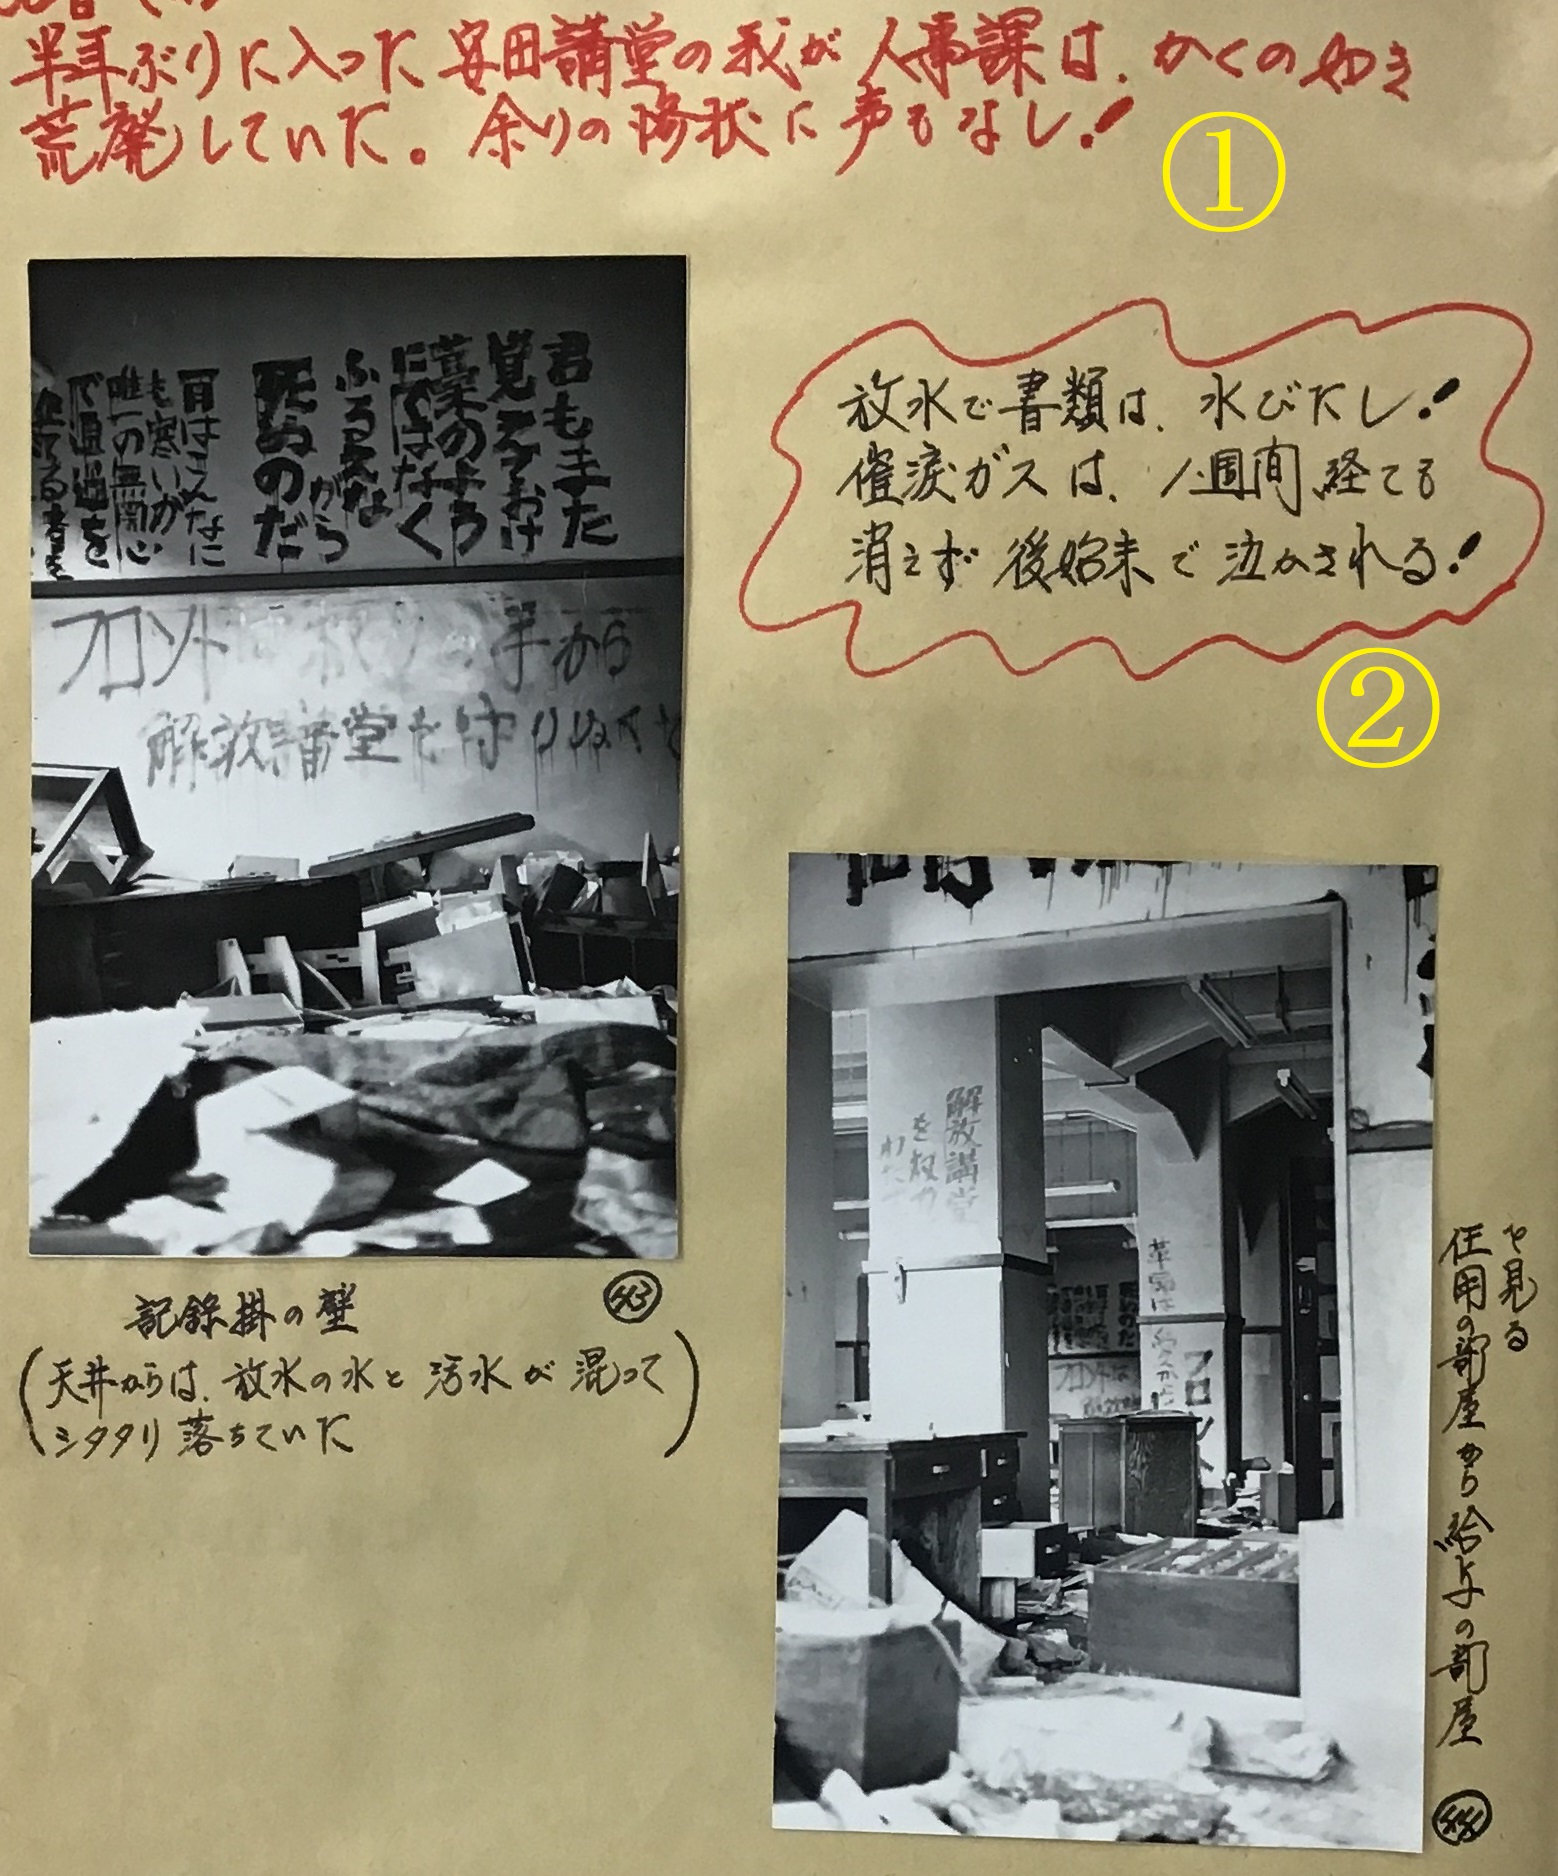 半年ぶりに入った安田講堂の我が人事課は、かくの如き
荒廃していた。余りの惨状に声もなし!
①
放水で書類は、水びたし!
催涙ガスは、1週間経ても
消えず後始末で泣かされる!
②
君もまた
覚えておけ
藁のよう
にではなく
ふるえな
がら
死ぬのだ
一月はこんなに
も寒いが
唯一の無関心
で通過を
フロント
手から
解放講堂を守りぬくぞ
43
記録掛の壁
(天井からは、放水の水と汚水が混って
シタタリ落ちていた)
解放講堂
を権力
フロント
任用の部屋から給与の部屋
を見る
44